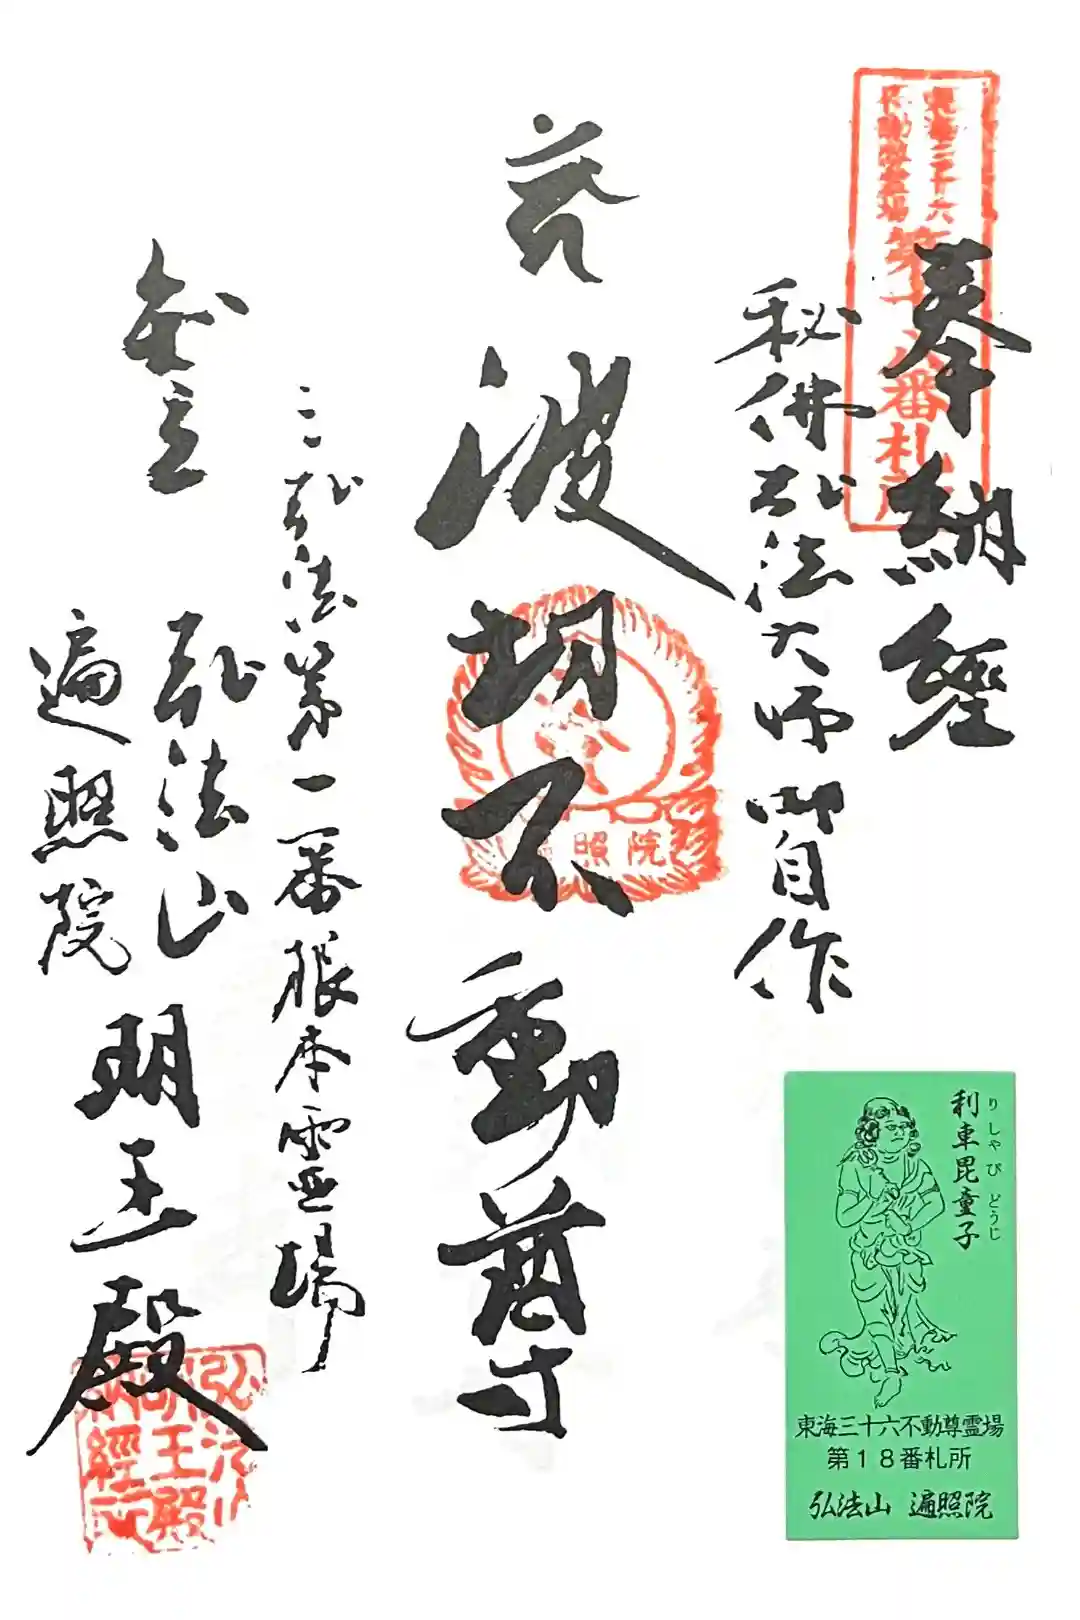 奉納経
東海三十六
不動尊霊場
第十八番札所
秘佛弘法大師御自作
波切不動尊
照院
三弘法第一番根本霊場
弘法山
遍照院
明王殿
弘法山
明王殿
納經所
利車毘童子
りしゃびどうじ
東海三十六不動尊霊場
第18番札所
弘法山 遍照院